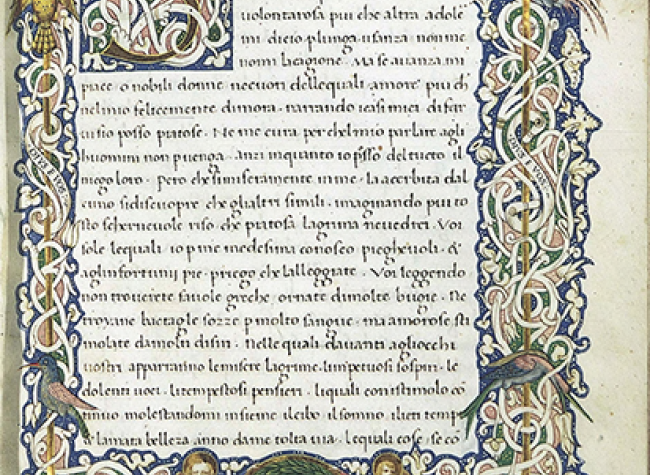 uolontarosa piu che altra adole
mi · dicio p lunga · usanza · non me
nomi la cagione · Ma se auanza · mi
piace · o nobili donne · ne cuori delle quali · amore piu ch
nel mio felicemente dimora · narrando i casi miei · di far
ui sio posso · piatose · Ne me cura · per chel mio parlare agli
huomini non puenga · anzi in quanto io posso del tucto il
niego loro · Pero che si miseramente · in me · la acerbita dal
cuno · si discuopre · che gli altri simili · imaginando piu to
sto scherneuole riso · che piatosa lagrima ne uedrei · Voi
sole · le quali · io p me medesima conosco · pieghevoli · &
agli infortunii pie · priego che la lleggiate · Voi leggendo
non trouerete fauole greche · ornate di molte bugie · Ne
troyane bactagle sozze p molto sangue · ma amorose sti
molate da molti disiri · nelle quali dauanti agli occhi
uostri apparranno le misere lagrime · limpetuosi sospiri · le
dolenti uoci · li tempestosi pensieri · li quali con istimolo cō
tinuo molestandomi insieme il cibo · il sonno · i lieti tempi
& lamata bellezza anno da me tolta uia · le quali cose · se cō